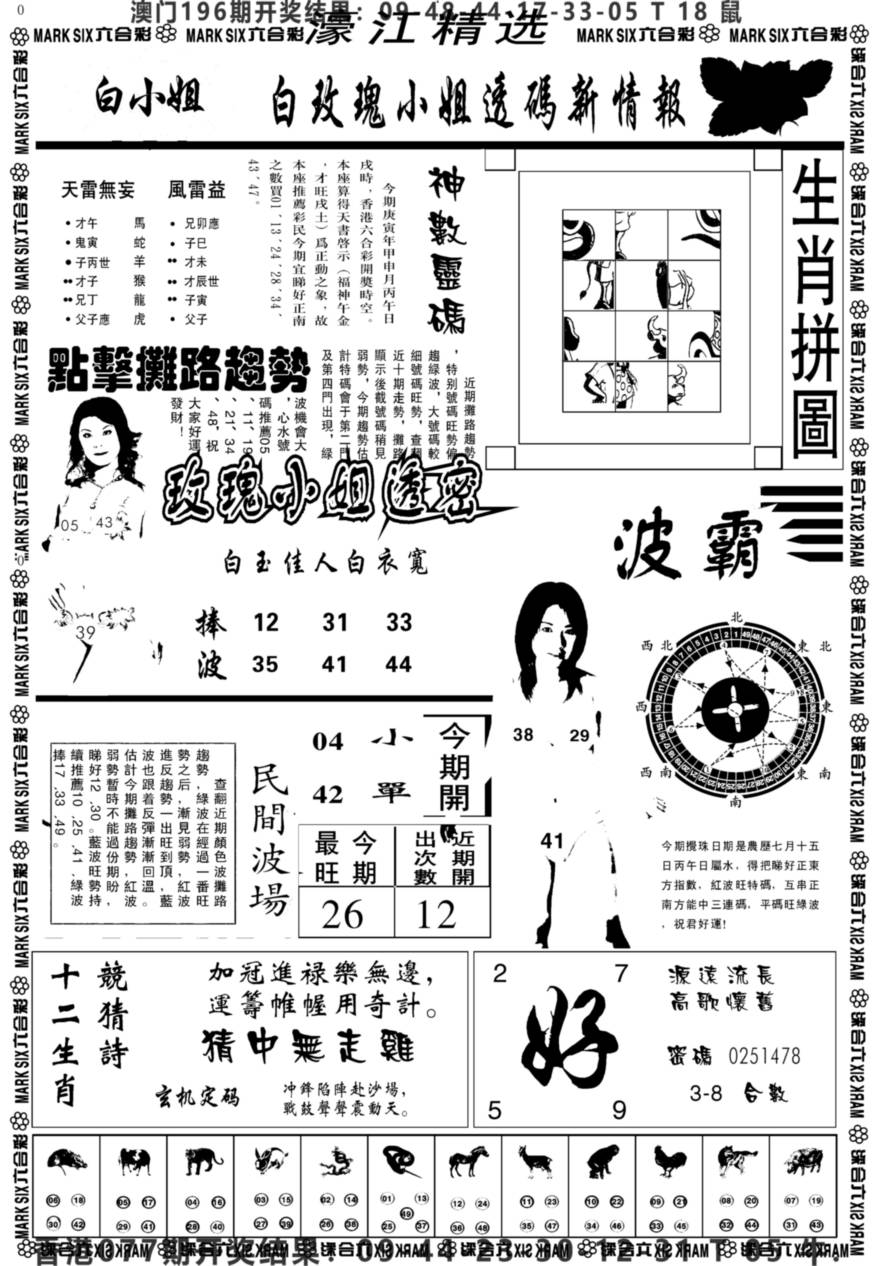 0
澳门196期开奖结果：09-48-44-17-33-05 T 18 鼠
MARK SIX 六合彩 MARK SIX 六合彩 濠江精选 MARK SIX 六合彩 MARK SIX 六合彩
白小姐 白玫瑰小姐透碼新情報
天雷無妄 風雷益
•才午 馬 •兄卯應
•鬼寅 蛇 •子巳
•子丙世 羊 ••才未
••才子 猴 ••才辰世
••兄丁 龍 ••子寅
•父子應 虎 •父子
神數靈碼
今期庚寅年甲申月丙午日
戌時，香港六合彩開獎時空。
本座算得天書啓示（福神午金
，才旺戌土）爲正動之象，故
本座推薦彩民今期宜睇好正南
之數買01、13、24、28、34、
43、47。
生肖拼圖
點擊攤路趨勢
近期攤路趨勢
，特别號碼旺勢偏
趨綠波，大號碼較
細號碼旺勢，查翻
近十期走勢，攤路
顯示後截號碼稍見
弱勢，今期趨勢估
計特碼會于第二門
及第四門出現，綠
波機會大
，心水號
碼推薦05
、11、19
、21、34
、48，祝
大家好運
發財！
05 43
39
玫瑰小姐透密
白玉佳人白衣寬
捧 12 31 33
波 35 41 44
波霸
38 29
41
北
東北
東
東南
南
西南
西
西北
今期攪珠日期是農歷七月十五
日丙午日屬水，得把睇好正東
方指數，紅波旺特碼，互串正
南方能中三連碼，平碼旺綠波
，祝君好運!
查翻近期顏色攤路
趨勢，綠波在經過一波
勢之后，漸見弱，紅番旺
進反趨勢一出旺到勢，藍波
波也跟着反彈漸頂，回
估計今期攤路趨勢漸紅溫。
弱勢暫時不能過份勢盼波
睇好12、30。藍波旺期，持
續推薦10、25、41，綠波
捧17、33、49。
民間波場
04 小
42 單
今期開
最旺 今期
出次數 近期開
26 12
十二生肖 競猜詩
加冠進禄樂無邊，
運籌帷幄用奇計。
猜中無走雞
玄机定码
冲鋒陷陣赴沙場，
戰鼓聲聲震動天。
2 7
好
5 9
源遠流長
高歌懷舊
密碼 0251478
3-8 合數
06 18 05 17 04 16 03 15 02 14 01 13 12 24 11 23 10 22 09 21 08 20 07 19
49
30 42 29 41 28 40 27 39 26 38 25 37 36 48 35 47 34 46 33 45 32 44 31 43
香港077期开奖结果：09-44-23-30-12-31 T 05 牛